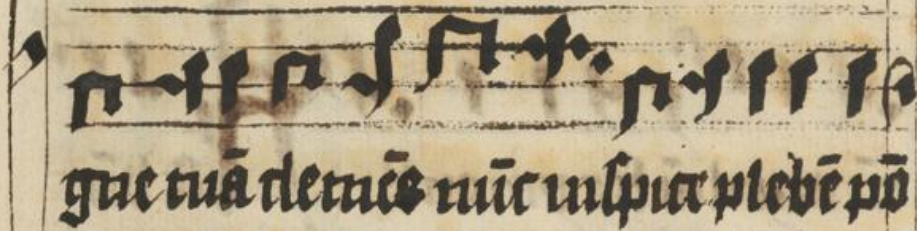 gne tuā clemēs nūc inspice plebē pō